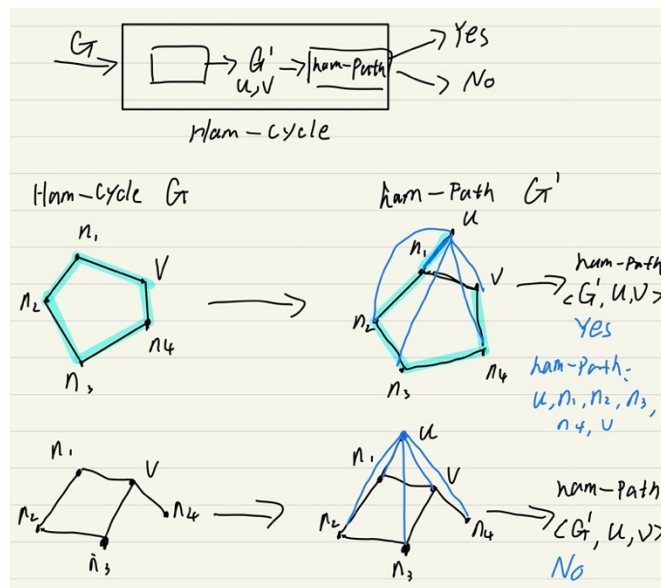 G
G'
u, v
ham-Path
Yes
No
Ham-Cycle
Ham-Cycle G
ham-Path G'
n₁
v
n₂
n₄
n₃
u
n₁
v
n₂
n₄
n₃
ham-path
<G', u, v>
Yes
ham-Path:
u, n₁, n₂, n₃,
n₄, v
n₁
v
n₂
n₄
n₃
u
n₁
v
n₂
n₄
n₃
ham-path
<G', u, v>
No